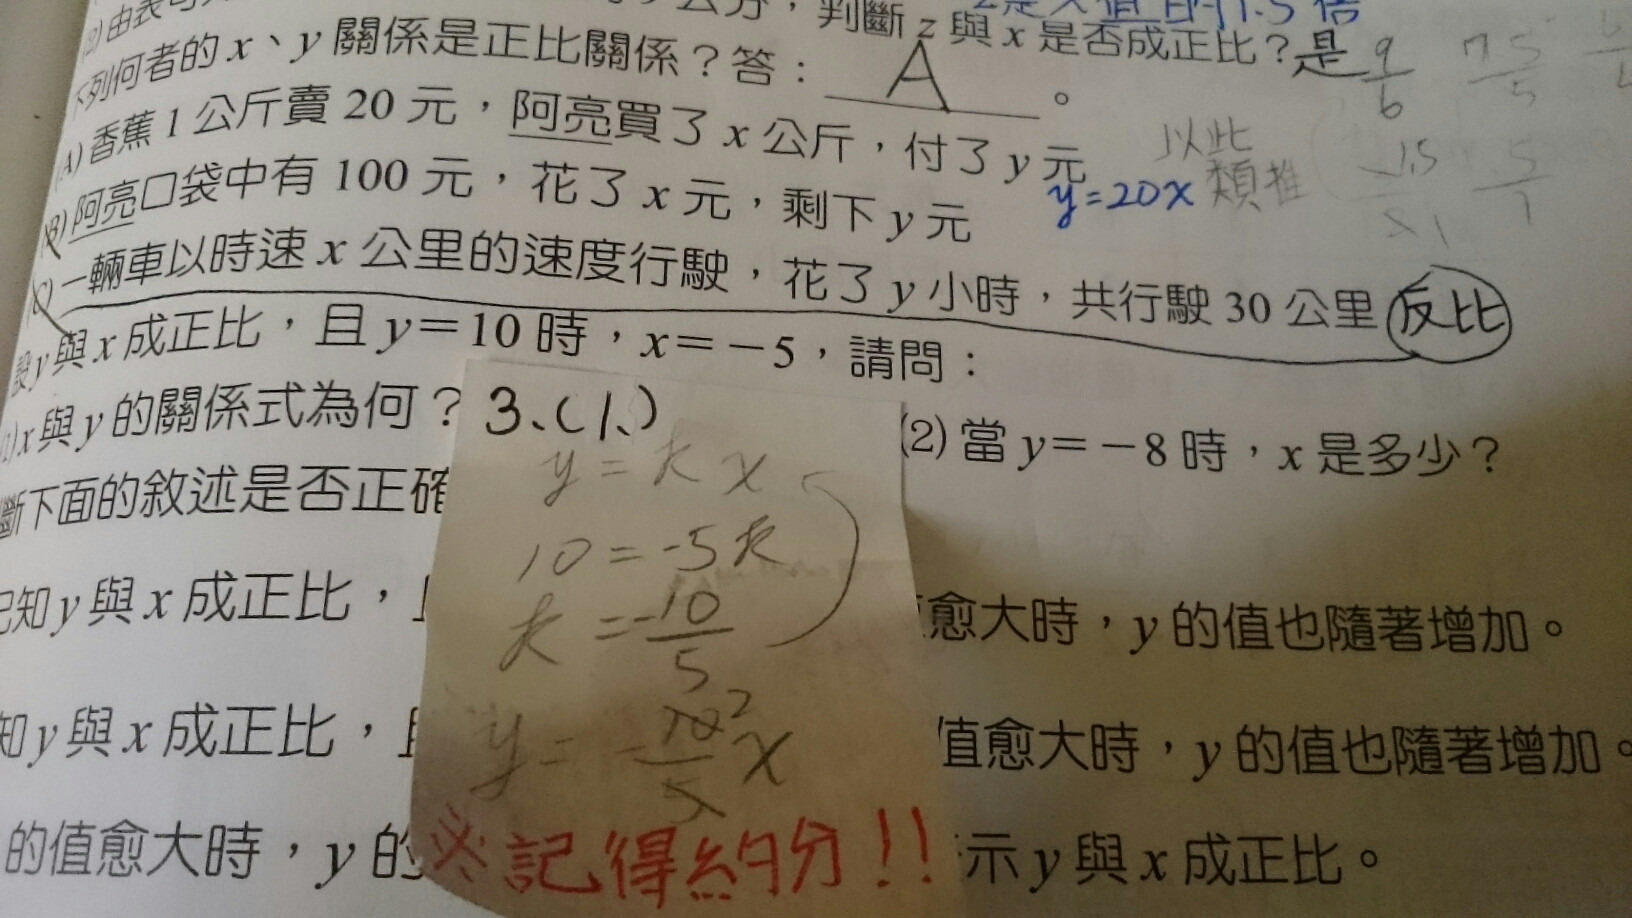 判斷 z 與 x 是否成正比？是
下列何者的 x、y 關係是正比關係？答： A 。
(A) 香蕉 1 公斤賣 20 元，阿亮買了 x 公斤，付了 y 元
y=20x
以此類推
(B) 阿亮口袋中有 100 元，花了 x 元，剩下 y 元
(C) 一輛車以時速 x 公里的速度行駛，花了 y 小時，共行駛 30 公里 反比
設 y 與 x 成正比，且 y＝10 時，x＝－5，請問：
(1) x 與 y 的關係式為何？ (2) 當 y＝－8 時，x 是多少？
斷下面的敘述是否正確
已知 y 與 x 成正比， 愈大時，y 的值也隨著增加。
知 y 與 x 成正比， 值愈大時，y 的值也隨著增加。
的值愈大時，y 的 示 y 與 x 成正比。
3、(1、)
y=kx
10=-5k
k=-10/5
y=-10/5 2 x
※記得約分!!